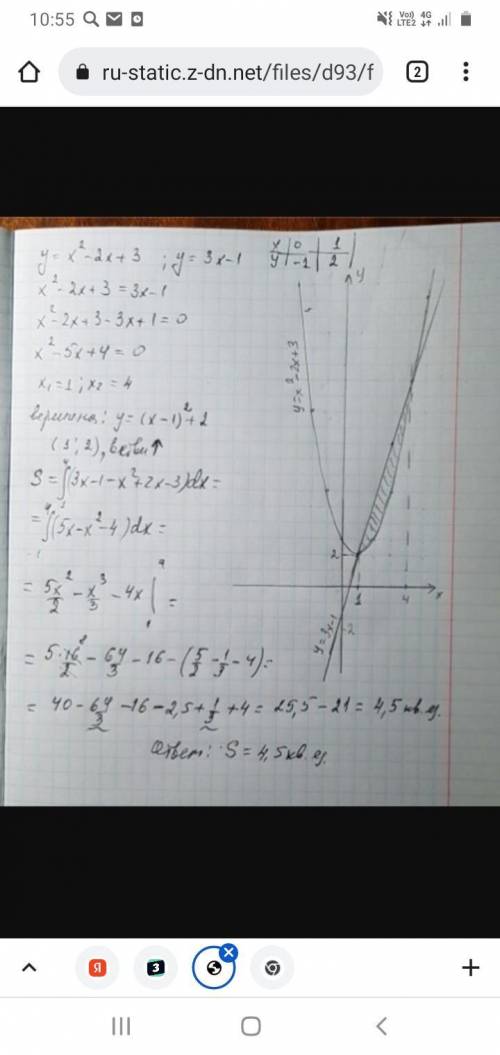 10:55 Vo)) LTE2 4G
ru-static.z-dn.net/files/d93/f 2
y = x² - 2x + 3 ; y = 3x - 1
x | 0 | 1
y | -1 | 2
x² - 2x + 3 = 3x - 1
x² - 2x + 3 - 3x + 1 = 0
x² - 5x + 4 = 0
x₁ = 1 ; x₂ = 4
вершина: y = (x - 1)² + 2
(1; 2), ветви ↑
S = ∫(3x - 1 - x² + 2x - 3)dx =
= ∫(5x - x² - 4)dx =
= 5x²/2 - x³/3 - 4x | =
= 5·16/2 - 64/3 - 16 - (5/2 - 1/3 - 4) =
= 40 - 64/3 - 16 - 2,5 + 1/3 + 4 = 25,5 - 21 = 4,5 кв. ед.
Ответ: S = 4,5 кв. ед.
y
y = x² - 2x + 3
2
1
4
x
y = 3x - 1
-2
Я
3